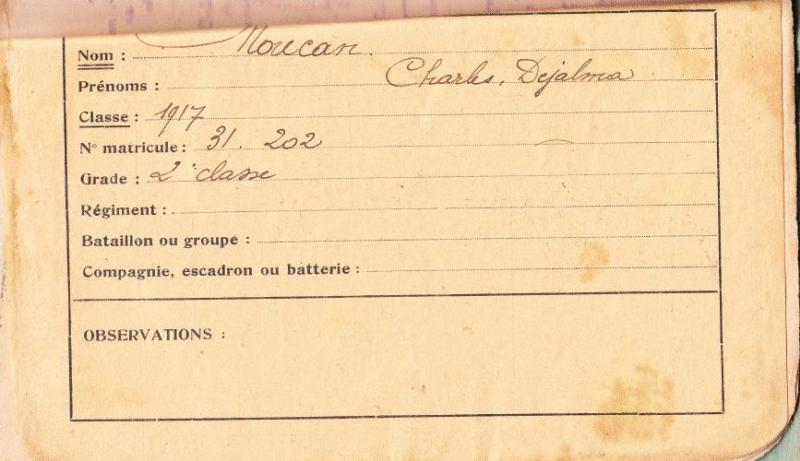 Nom : Moucan.
Prénoms : Charles, Dejalma
Classe : 1917
Nº matricule : 31. 202
Grade : 2e classe
Régiment :
Bataillon ou groupe :
Compagnie, escadron ou batterie :
OBSERVATIONS :